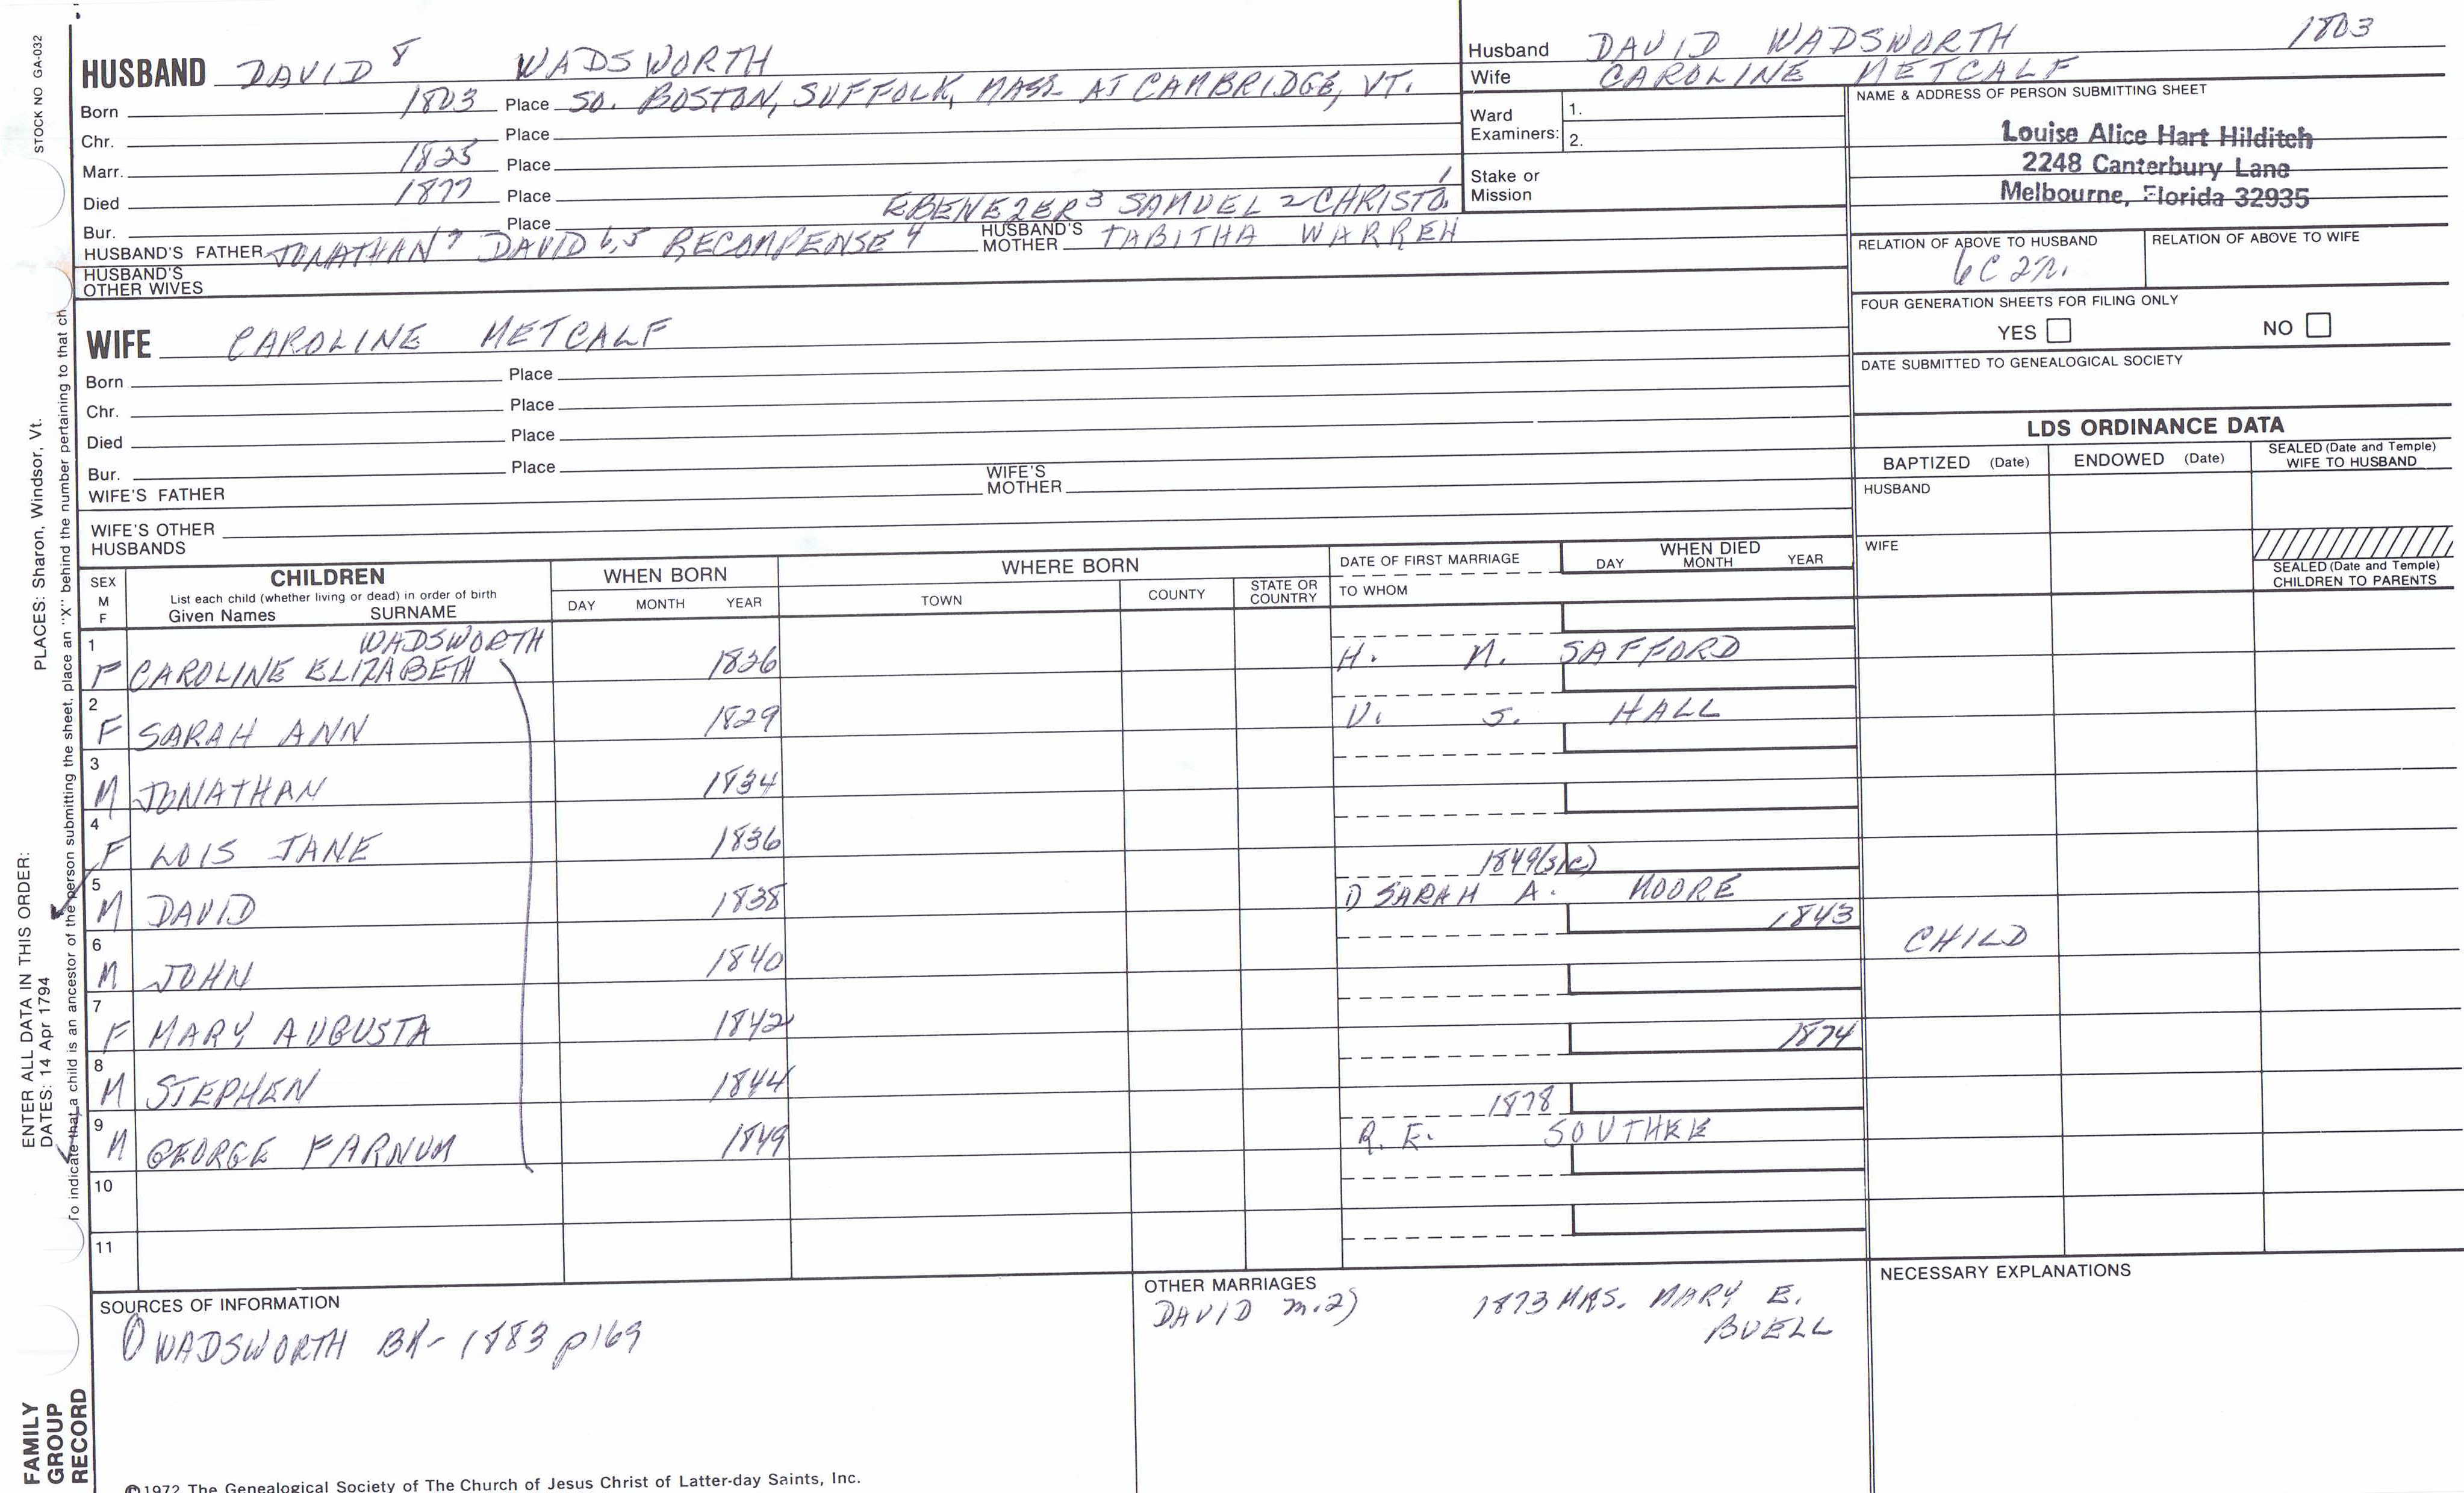 STOCK NO GA-032
HUSBAND DAVID 8 WADSWORTH
Born 1803 Place SO. BOSTON, SUFFOLK, MASS. AT CAMBRIDGE, VT.
Chr. Place
Marr. 1825 Place
Died 1877 Place
EBENEZER 3 SAMUEL 2 CHRISTO. 1
Bur. Place
HUSBAND'S FATHER JONATHAN 7 DAVID 6,5 RECOMPENSE 4 HUSBAND'S MOTHER TABITHA WARREN
HUSBAND'S OTHER WIVES
Husband DAVID WADSWORTH 1803
Wife CAROLINE METCALF
Ward Examiners: 1.
2.
Stake or Mission
NAME & ADDRESS OF PERSON SUBMITTING SHEET
Louise Alice Hart Hilditch
2248 Canterbury Lane
Melbourne, Florida 32935
RELATION OF ABOVE TO HUSBAND RELATION OF ABOVE TO WIFE
6C 2R.
FOUR GENERATION SHEETS FOR FILING ONLY
YES NO
DATE SUBMITTED TO GENEALOGICAL SOCIETY
WIFE CAROLINE METCALF
Born Place
Chr. Place
Died Place
Bur. Place
WIFE'S FATHER WIFE'S MOTHER
WIFE'S OTHER HUSBANDS
LDS ORDINANCE DATA
BAPTIZED (Date) ENDOWED (Date) SEALED (Date and Temple) WIFE TO HUSBAND
HUSBAND
WIFE
SEALED (Date and Temple) CHILDREN TO PARENTS
SEX M F
CHILDREN
List each child (whether living or dead) in order of birth
Given Names SURNAME
WHEN BORN
DAY MONTH YEAR
WHERE BORN
TOWN COUNTY STATE OR COUNTRY
DATE OF FIRST MARRIAGE
TO WHOM
WHEN DIED
DAY MONTH YEAR
WADSWORTH
1 F CAROLINE ELIZABETH 1826 H. N. SAFFORD
2 F SARAH ANN 1829 V. S. HALL
3 M JONATHAN 1834
4 F LOIS JANE 1836
1849(sic)
5 M DAVID 1838 1) SARAH A. MOORE
6 M JOHN 1840 1843 CHILD
7 F MARY AUGUSTA 1842
8 M STEPHEN 1844 1874
1878
9 M GEORGE FARNUM 1849 R. E. SOUTHEE
10
11
SOURCES OF INFORMATION
① WADSWORTH BK- 1883 p169
OTHER MARRIAGES
DAVID m.2) 1873 MRS. MARY E.
BUELL
NECESSARY EXPLANATIONS
©1972 The Genealogical Society of The Church of Jesus Christ of Latter-day Saints, Inc.
FAMILY
GROUP
RECORD
ENTER ALL DATA IN THIS ORDER:
DATES: 14 Apr 1794
PLACES: Sharon, Windsor, Vt.
To indicate that a child is an ancestor of the person submitting the sheet, place an "X" behind the number pertaining to that ch